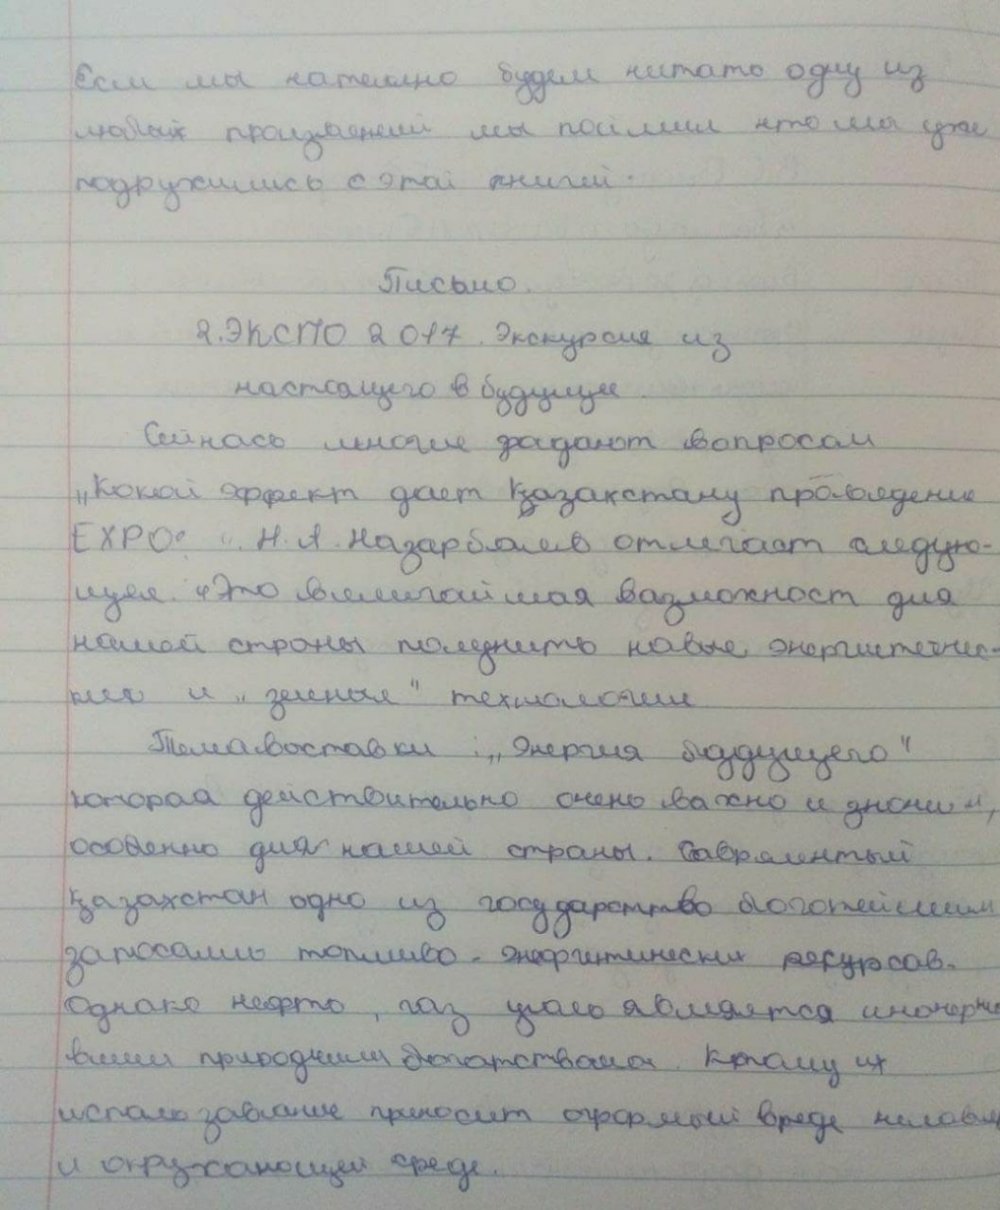 Если мы нательно будем читато одну из
любых произведений мы поймем что мы уже
подружились с этой книгой.
Письмо.
2. ЭКСПО 2017. Экскурсия из
настоящего в будущее.
Сейчась многие задают вопросам
„Какой эффект дает Қазакстану проведение
EXPO? “. Н.А. Назарбаев отмечает следую-
щее. „Это величайшая вазможност для
нашей страны получить новые энергетичес-
кие и „зеленые“ технологии
Тема выставки : „Энергия будущего“
которая действительно очень важно и
особенно для нашей страны. Современный
Қазахстан одно из государство богатейшими
запасами топливо - энергитических ресурсов.
Однако нефть, газ уголь является исчерпае
выми природными богатствами. К тому их
использавание приносит огромный вреде челове
и окружающей среде.